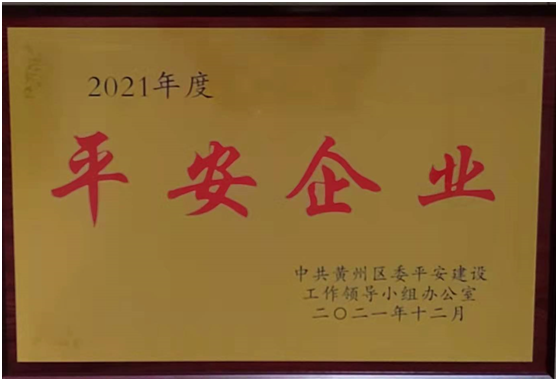 2021年度
平安企业
中共黄州区委平安建设
工作领导小组办公室
二〇二一年十二月